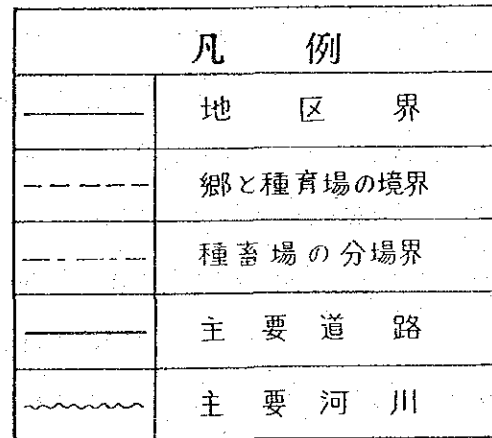 凡例
地区界
郷と種育場の境界
種畜場の分場界
主要道路
主要河川